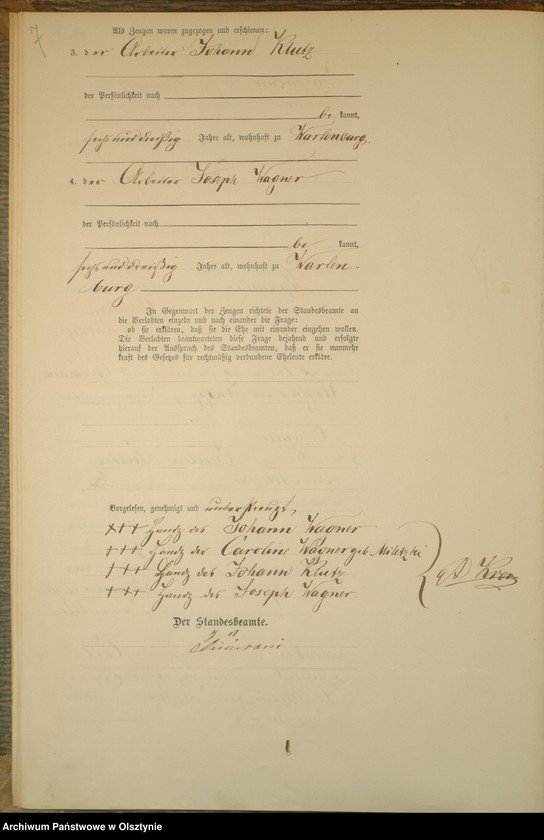 7
Als Zeugen waren zugezogen und erschienen:
3. der Arbeiter Johann Klutz
der Persönlichkeit nach
be kannt,
sechsunddreißig Jahre alt, wohnhaft zu Wartenburg.
4. der Arbeiter Joseph Wagner
der Persönlichkeit nach
be kannt,
sechsunddreißig Jahre alt, wohnhaft zu Warten-
burg
In Gegenwart der Zeugen richtete der Standesbeamte an
die Verlobten einzeln und nach einander die Frage:
ob sie erklären, daß sie die Ehe mit einander eingehen wollen.
Die Verlobten beantworteten diese Frage bejahend und erfolgte
hierauf der Ausspruch des Standesbeamten, daß er sie nunmehr
kraft des Gesetzes für rechtmäßig verbundene Eheleute erkläre.
Vorgelesen, genehmigt und unterkreuzt,
+++ Handz des Johann Wagner
+++ Handz der Caroline Wagner geb. Miletzki
+++ Handz des Johann Klutz
+++ Handz des Joseph Wagner
Der Standesbeamte.
Archiwum Państwowe w Olsztynie